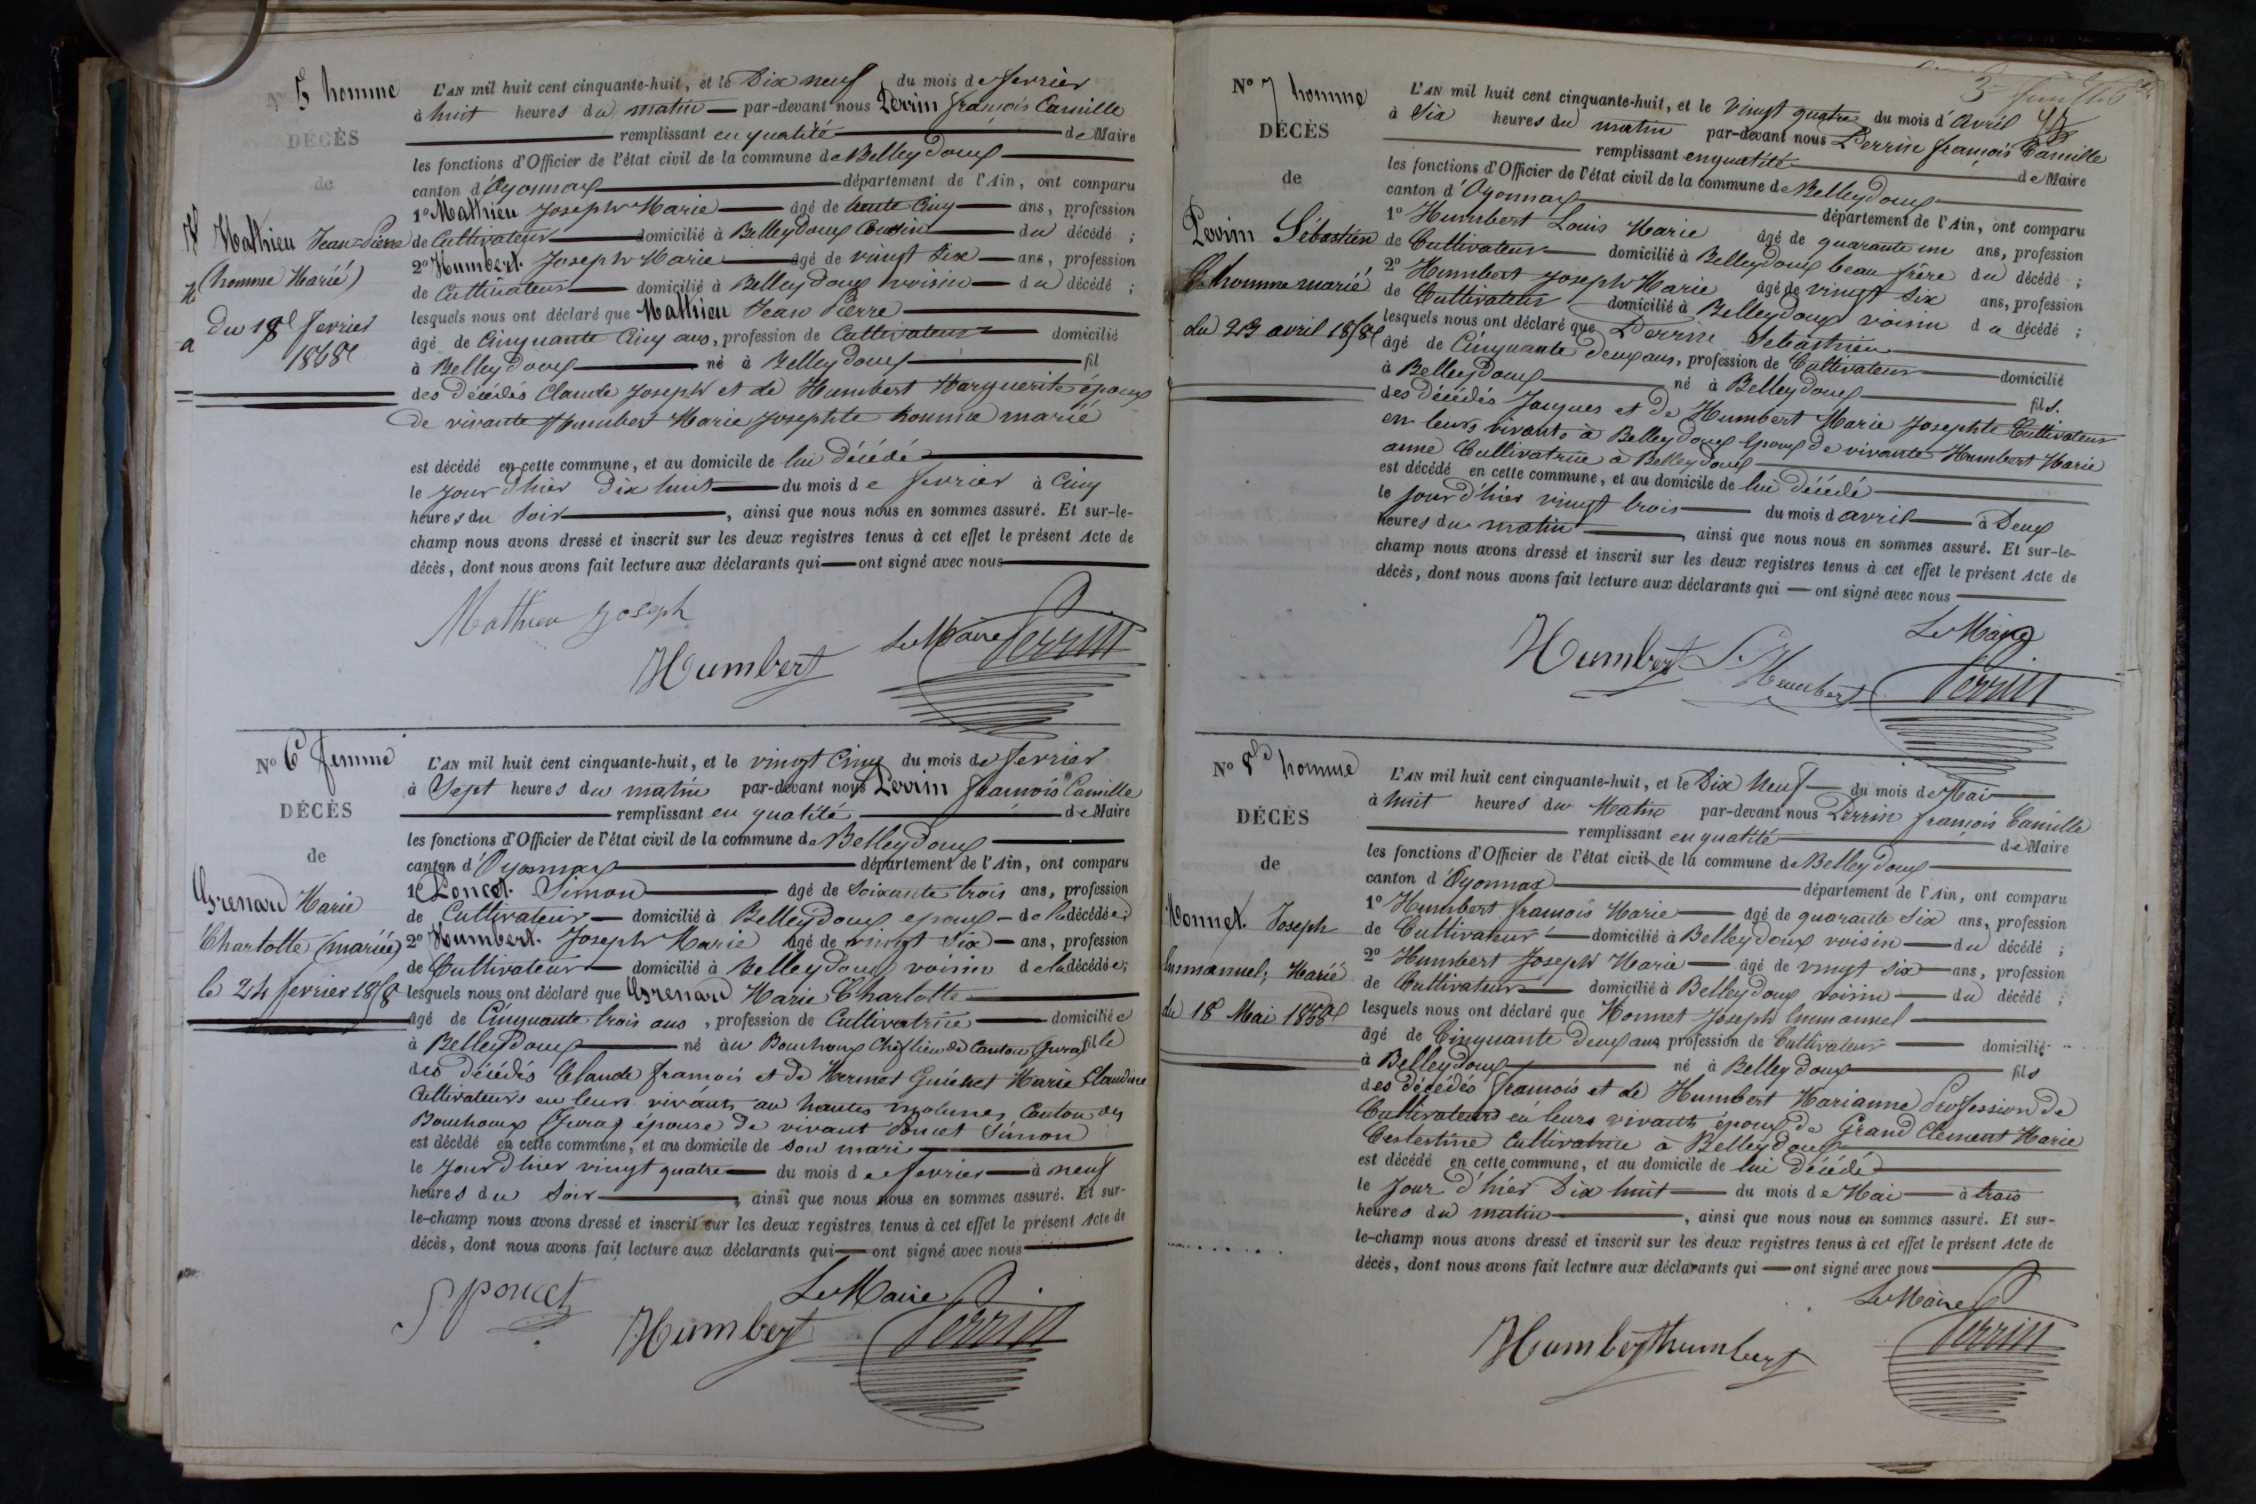 N° 5 homme
DÉCÈS
de
Mathieu Jean-Pierre
(homme Marié)
Du 18 fevrier
1858
L'AN mil huit cent cinquante-huit, et le Dix neuf du mois de fevrier
à huit heures du matin par-devant nous Perrin françois Camille
remplissant en qualité de Maire
les fonctions d'Officier de l'état civil de la commune de Belleydoux
canton d'Oyonnax département de l'Ain, ont comparu
1° Mathieu Joseph Marie âgé de trente Cinq ans, profession
de Cultivateur domicilié à Belleydoux Cousin du décédé ;
2° Humbert Joseph Marie âgé de vingt Six ans, profession
de Cultivateur domicilié à Belleydoux voisin du décédé ;
lesquels nous ont déclaré que Mathieu Jean Pierre
âgé de Cinquante Cinq ans, profession de Cultivateur domicilié
à Belleydoux né à Belleydoux fil
des décédés Claude Joseph et de Humbert Marguerite époux
de vivante Humbert Marie Josephte homme marié
est décédé en cette commune, et au domicile de lui décédé
le jour d'hier Dix huit du mois de fevrier à Cinq
heures du Soir, ainsi que nous nous en sommes assuré. Et sur-le-
champ nous avons dressé et inscrit sur les deux registres tenus à cet effet le présent Acte de
décès, dont nous avons fait lecture aux déclarants qui ont signé avec nous
Mathieu Joseph
Humbert
Le Maire Perrin
N° 6 femme
DÉCÈS
de
Grenard Marie
Charlotte (mariée)
le 24 fevrier 1858
L'AN mil huit cent cinquante-huit, et le vingt Cinq du mois de fevrier
à Sept heures du matin par-devant nous Perrin françois Camille
remplissant en qualité de Maire
les fonctions d'Officier de l'état civil de la commune de Belleydoux
canton d'Oyonnax département de l'Ain, ont comparu
1° Poncet Simon âgé de Soixante trois ans, profession
de Cultivateur domicilié à Belleydoux epoux de la décédée ;
2° Humbert Joseph Marie âgé de vingt Six ans, profession
de Cultivateur domicilié à Belleydoux voisin de la décédée ;
lesquels nous ont déclaré que Grenard Marie Charlotte
âgé de Cinquante trois ans, profession de Cultivatrice domiciliée
à Belleydoux né au Bouchoux Cheflieu de Canton (Jura) fille
des décédés Claude françois et de Mermet Guichet Marie Claudine
Cultivateurs en leurs vivants au hautes molunes Canton des
Bouchoux (Jura) épouse de vivant Poncet Simon
est décédé en cette commune, et au domicile de son mari
le jour d'hier vingt quatre du mois de fevrier à neuf
heures du Soir, ainsi que nous nous en sommes assuré. Et sur-
le-champ nous avons dressé et inscrit sur les deux registres tenus à cet effet le présent Acte de
décès, dont nous avons fait lecture aux déclarants qui ont signé avec nous
S poncet
Humbert
Le Maire
Perrin
N° 7 homme
DÉCÈS
de
Perrin Sébastien
homme marié
du 23 avril 1858
L'AN mil huit cent cinquante-huit, et le Vingt quatre du mois d'Avril
à Six heures du matin par-devant nous Perrin françois Camille
remplissant en qualité de Maire
les fonctions d'Officier de l'état civil de la commune de Belleydoux
canton d'Oyonnax département de l'Ain, ont comparu
1° Humbert Louis Marie âgé de quarante un ans, profession
de Cultivateur domicilié à Belleydoux beau frère du décédé ;
2° Humbert Joseph Marie âgé de vingt Six ans, profession
de Cultivateur domicilié à Belleydoux voisin du décédé ;
lesquels nous ont déclaré que Perrin Sebastien
âgé de Cinquante Deux ans, profession de Cultivateur domicilié
à Belleydoux né à Belleydoux fils.
des décédés Jacques et de Humbert Marie Josephte Cultivateur
en leurs vivants à Belleydoux Epoux de vivante Humbert Marie
anne Cultivatrice à Belleydoux
est décédé en cette commune, et au domicile de lui décédé
le jour d'hier vingt trois du mois d avril à Deux
heures du matin, ainsi que nous nous en sommes assuré. Et sur-le-
champ nous avons dressé et inscrit sur les deux registres tenus à cet effet le présent Acte de
décès, dont nous avons fait lecture aux déclarants qui ont signé avec nous
Le Maire
Humbert Humbert Perrin
N° 8 homme
DÉCÈS
de
Monnet Joseph
Emmanuel, Marié
du 18 Mai 1858
L'AN mil huit cent cinquante-huit, et le Dix Neuf du mois de Mai
à huit heures du Matin par-devant nous Perrin françois Camille
remplissant en qualité de Maire
les fonctions d'Officier de l'état civil de la commune de Belleydoux
canton d'Oyonnax département de l'Ain, ont comparu
1° Humbert françois Marie âgé de quarante Six ans, profession
de Cultivateur domicilié à Belleydoux voisin du décédé ;
2° Humbert Joseph Marie âgé de vingt Six ans, profession
de Cultivateur domicilié à Belleydoux voisin du décédé ;
lesquels nous ont déclaré que Monnet Joseph Emmanuel
âgé de Cinquante Deux ans profession de Cultivateur domicilié
à Belleydoux né à Belleydoux fils
des décédés françois et de Humbert Marianne Profession de
Cultivateurs en leurs vivants époux de Grand Clement Marie
Celestine Cultivatrice à Belleydoux
est décédé en cette commune, et au domicile de lui décédé
le Jour d'hier Dix huit du mois de Mai à trois
heures du matin, ainsi que nous nous en sommes assuré. Et sur-
le-champ nous avons dressé et inscrit sur les deux registres tenus à cet effet le présent Acte de
décès, dont nous avons fait lecture aux déclarants qui ont signé avec nous
Le Maire
Humbert humbert Perrin